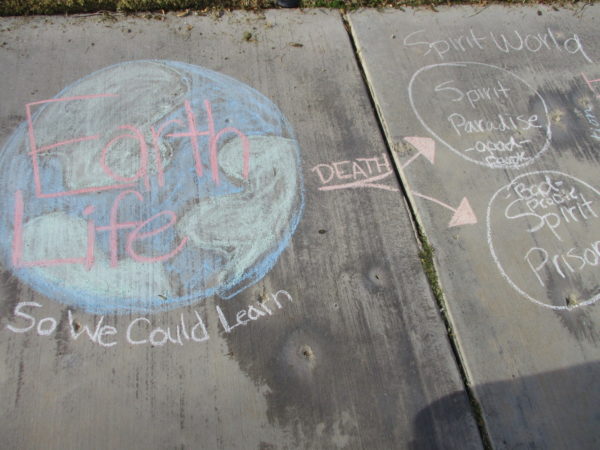 Earth
Life
So We Could Learn
DEATH
Spirit World
Spirit
Paradise
-good-
People
-Bad-
People
Spirit
Prison